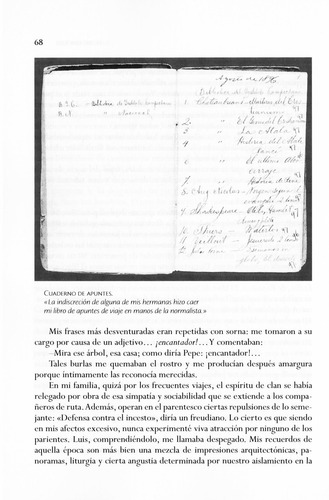 68
Agosto de 1896
B.I.C. = Biblioteca del Instituto Campechano
" Nacional
Biblioteca del Instituto Campechano
1. Chateaubriand
2 " El Genio del Cristianismo
3 " La Atala
4 " Historia del
" El último Abencerraje
7 " Historia de
Shakespeare Otelo, Hamlet
CUADERNO DE APUNTES.
«La indiscreción de alguna de mis hermanas hizo caer
mi libro de apuntes de viaje en manos de la normalista.»
Mis frases más desventuradas eran repetidas con sorna: me tomaron a su
cargo por causa de un adjetivo... ¡encantador!... Y comentaban:
–Mira ese árbol, esa casa; como diría Pepe: ¡encantador!...
Tales burlas me quemaban el rostro y me producían después amargura
porque íntimamente las reconocía merecidas.
En mi familia, quizá por los frecuentes viajes, el espíritu de clan se había
relegado por obra de esa simpatía y sociabilidad que se extiende a los compa-
ñeros de ruta. Además, operan en el parentesco ciertas repulsiones de lo seme-
jante: «Defensa contra el incesto», diría un freudiano. Lo cierto es que siendo
en mis afectos excesivo, nunca experimenté viva atracción por ninguno de los
parientes. Luis, comprendiéndolo, me llamaba despegado. Mis recuerdos de
aquella época son más bien una mezcla de impresiones arquitectónicas, pa-
noramas, liturgia y cierta angustia determinada por nuestro aislamiento en la